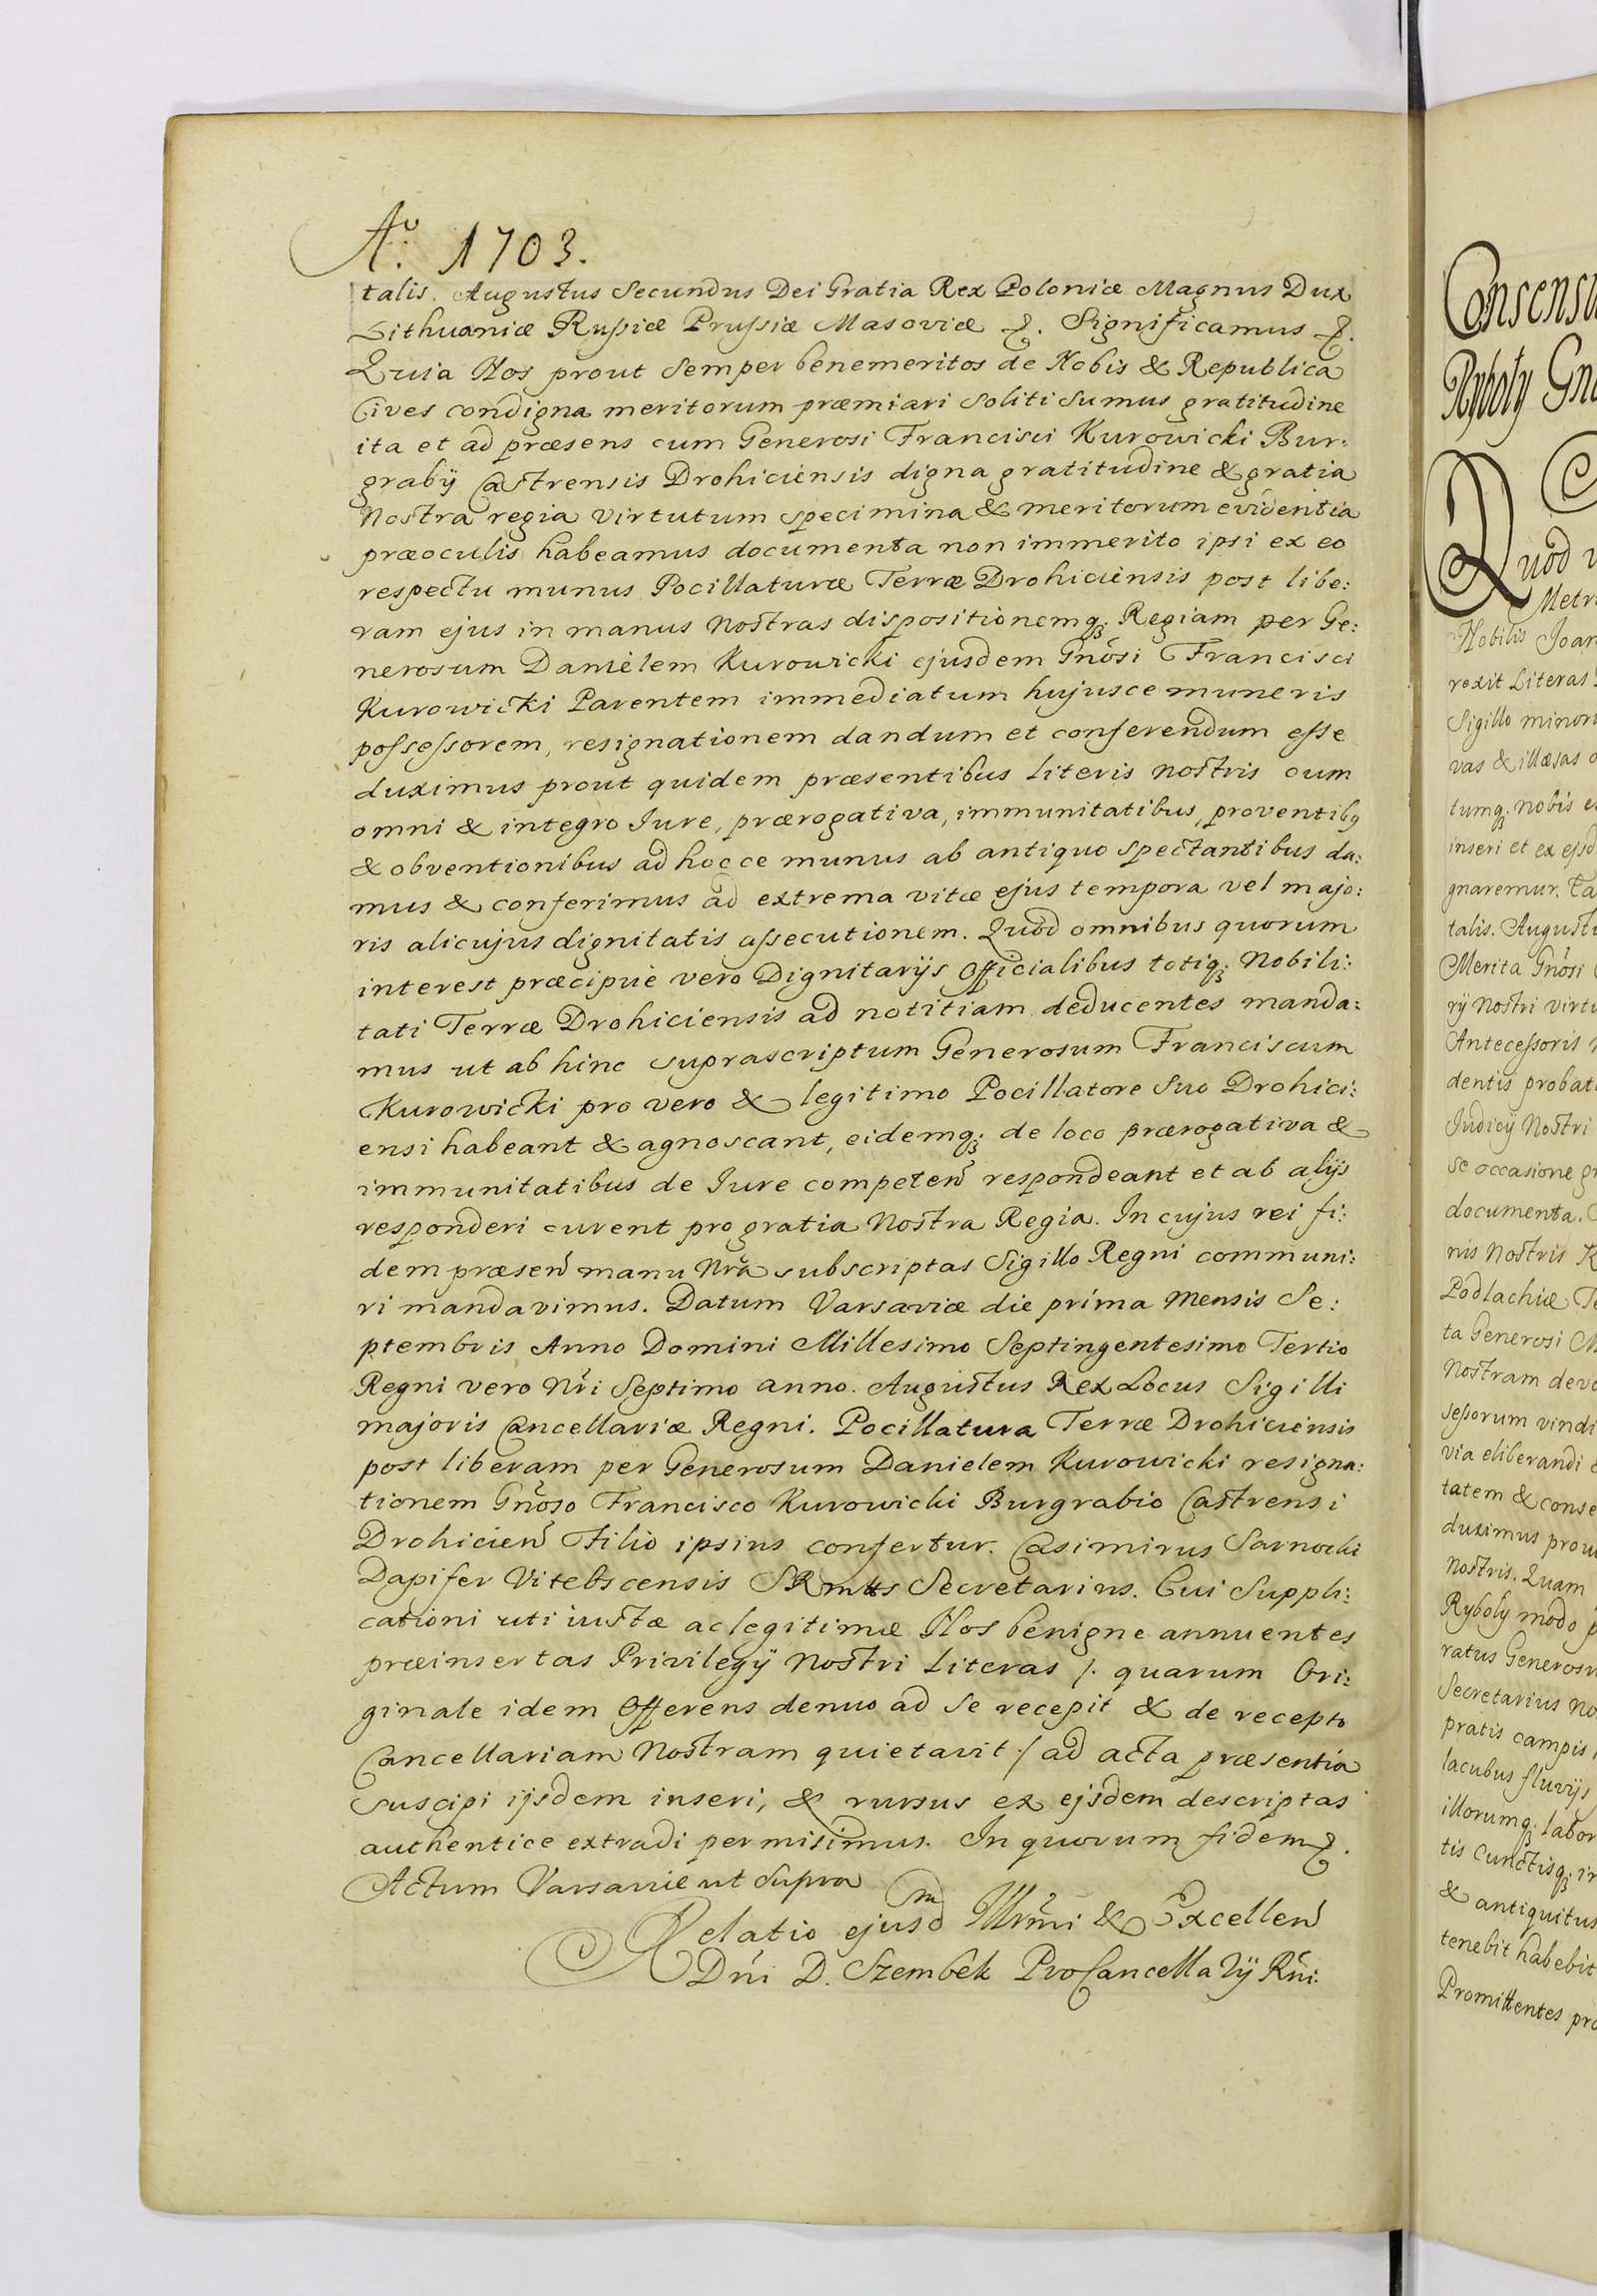 Aº. 1703.
talis. Augustus Secundus Dei Gratia Rex Poloniæ Magnus Dux
Lithuaniæ Rußiæ Prußiæ Masoviæ &. Significamus &.
Quia Nos prout semper benemeritos de Nobis & Republica
Cives condigna meritorum præmiari soliti sumus gratitudine
ita et ad præsens cum Generosi Francisci Kurowicki Bur:
grabÿ Castrensis Drohiciensis digna gratitudine & gratia
Nostra regia virtutum specimina & meritorum evidentia
præoculis habeamus documenta non immerito ipsi ex eo
respectu munus Pocillaturæ Terræ Drohiciensis post libe:
ram ejus in manus Nostras dispositionemq; Regiam per Ge:
nerosum Danielem Kurowicki ejusdem Gnosi Francisci
Kurowicki Parentem immediatum hujusce muneris
possessorem, resignationem dandum et conferendum esse
duximus prout quidem præsentibus Literis Nostris cum
omni & integro Iure, prærogativa, immunitatibus, proventibq
& obventionibus ad hocce munus ab antiquo spectantibus da:
mus & conferimus ad extrema vitæ ejus tempora vel majo:
ris alicujus dignitatis assecutionem. Quod omnibus quorum
interest præcipue vero Dignitarijs Officialibus totiq; Nobili:
tati Terræ Drohiciensis ad notitiam deducentes manda:
mus ut ab hinc suprascriptum Generosum Franciscum
Kurowicki pro vero & legitimo Pocillatore Suo Drohici:
ensi habeant & agnoscant, eidemq; de loco prærogativa &
immunitatibus de Iure competen̄ respondeant et ab alijs
responderi curent pro gratia Nostra Regia. In cujus rei fi:
dem præsen̄ manu Nr̄a subscriptas Sigillo Regni communi:
ri mandavimus. Datum Varsaviæ die prima Mensis Se:
ptembris Anno Domini Millesimo Septingentesimo Tertio
Regni vero Nr̄i Septimo anno. Augustus Rex Locus Sigilli
majoris Cancellariæ Regni. Pocillatura Terræ Drohiciensis
post liberam per Generosum Danielem Kurowicki resigna:
tionem Gnoso Francisco Kurowicki Burgrabio Castrensi
Drohicien̄ Filio ipsius confertur. Casimirus Sarnocki
Dapifer Vitebscensis SRmtts Secretarius. Cui Suppli:
cationi uti iustæ ac legitimæ Nos benigne annuentes
præinsertas Privilegÿ Nostri Literas /. quarum Ori:
ginale idem Offerens denuo ad se recepit & de recepto
Cancellariam Nostram quietavit ./ ad acta præsentia
suscipi ijsdem inseri, & rursus ex ejsdem descriptas
authentice extradi permisimus. In quorum fidem &.
Actum Varsaviæ ut Supra
Relatio ejusdm Illmr̄i & Excellen̄
Dn̄i D. Szembek ProCancellarÿ Rn̄i.
Consensu
Ryboły Gn
Quod v
Metri
Nobilis Joan
rexit Literas
Sigillo minori
vas & illæsas
tumq; nobis
inseri et ex ejsd
gnaremur. Ta
talis. Augustu
Merita Gnosi
rÿ Nostri virtu
Antecessoris
dentis probat
Judicÿ Nostri
se occasione
documenta.
nis Nostris
Podlachiæ Te
ta Generosi
Nostram devo
sessorum vindi
via eliberandi
tatem & conse
duximus prou
Nostris. Quam
Ryboły modo
ratus Generosu
Secretarius No
pratis campis
lacubus fluvijs
illorumq; labor
tis cunctisq; in
& antiquitus
tenebit habebit
Promittentes pro